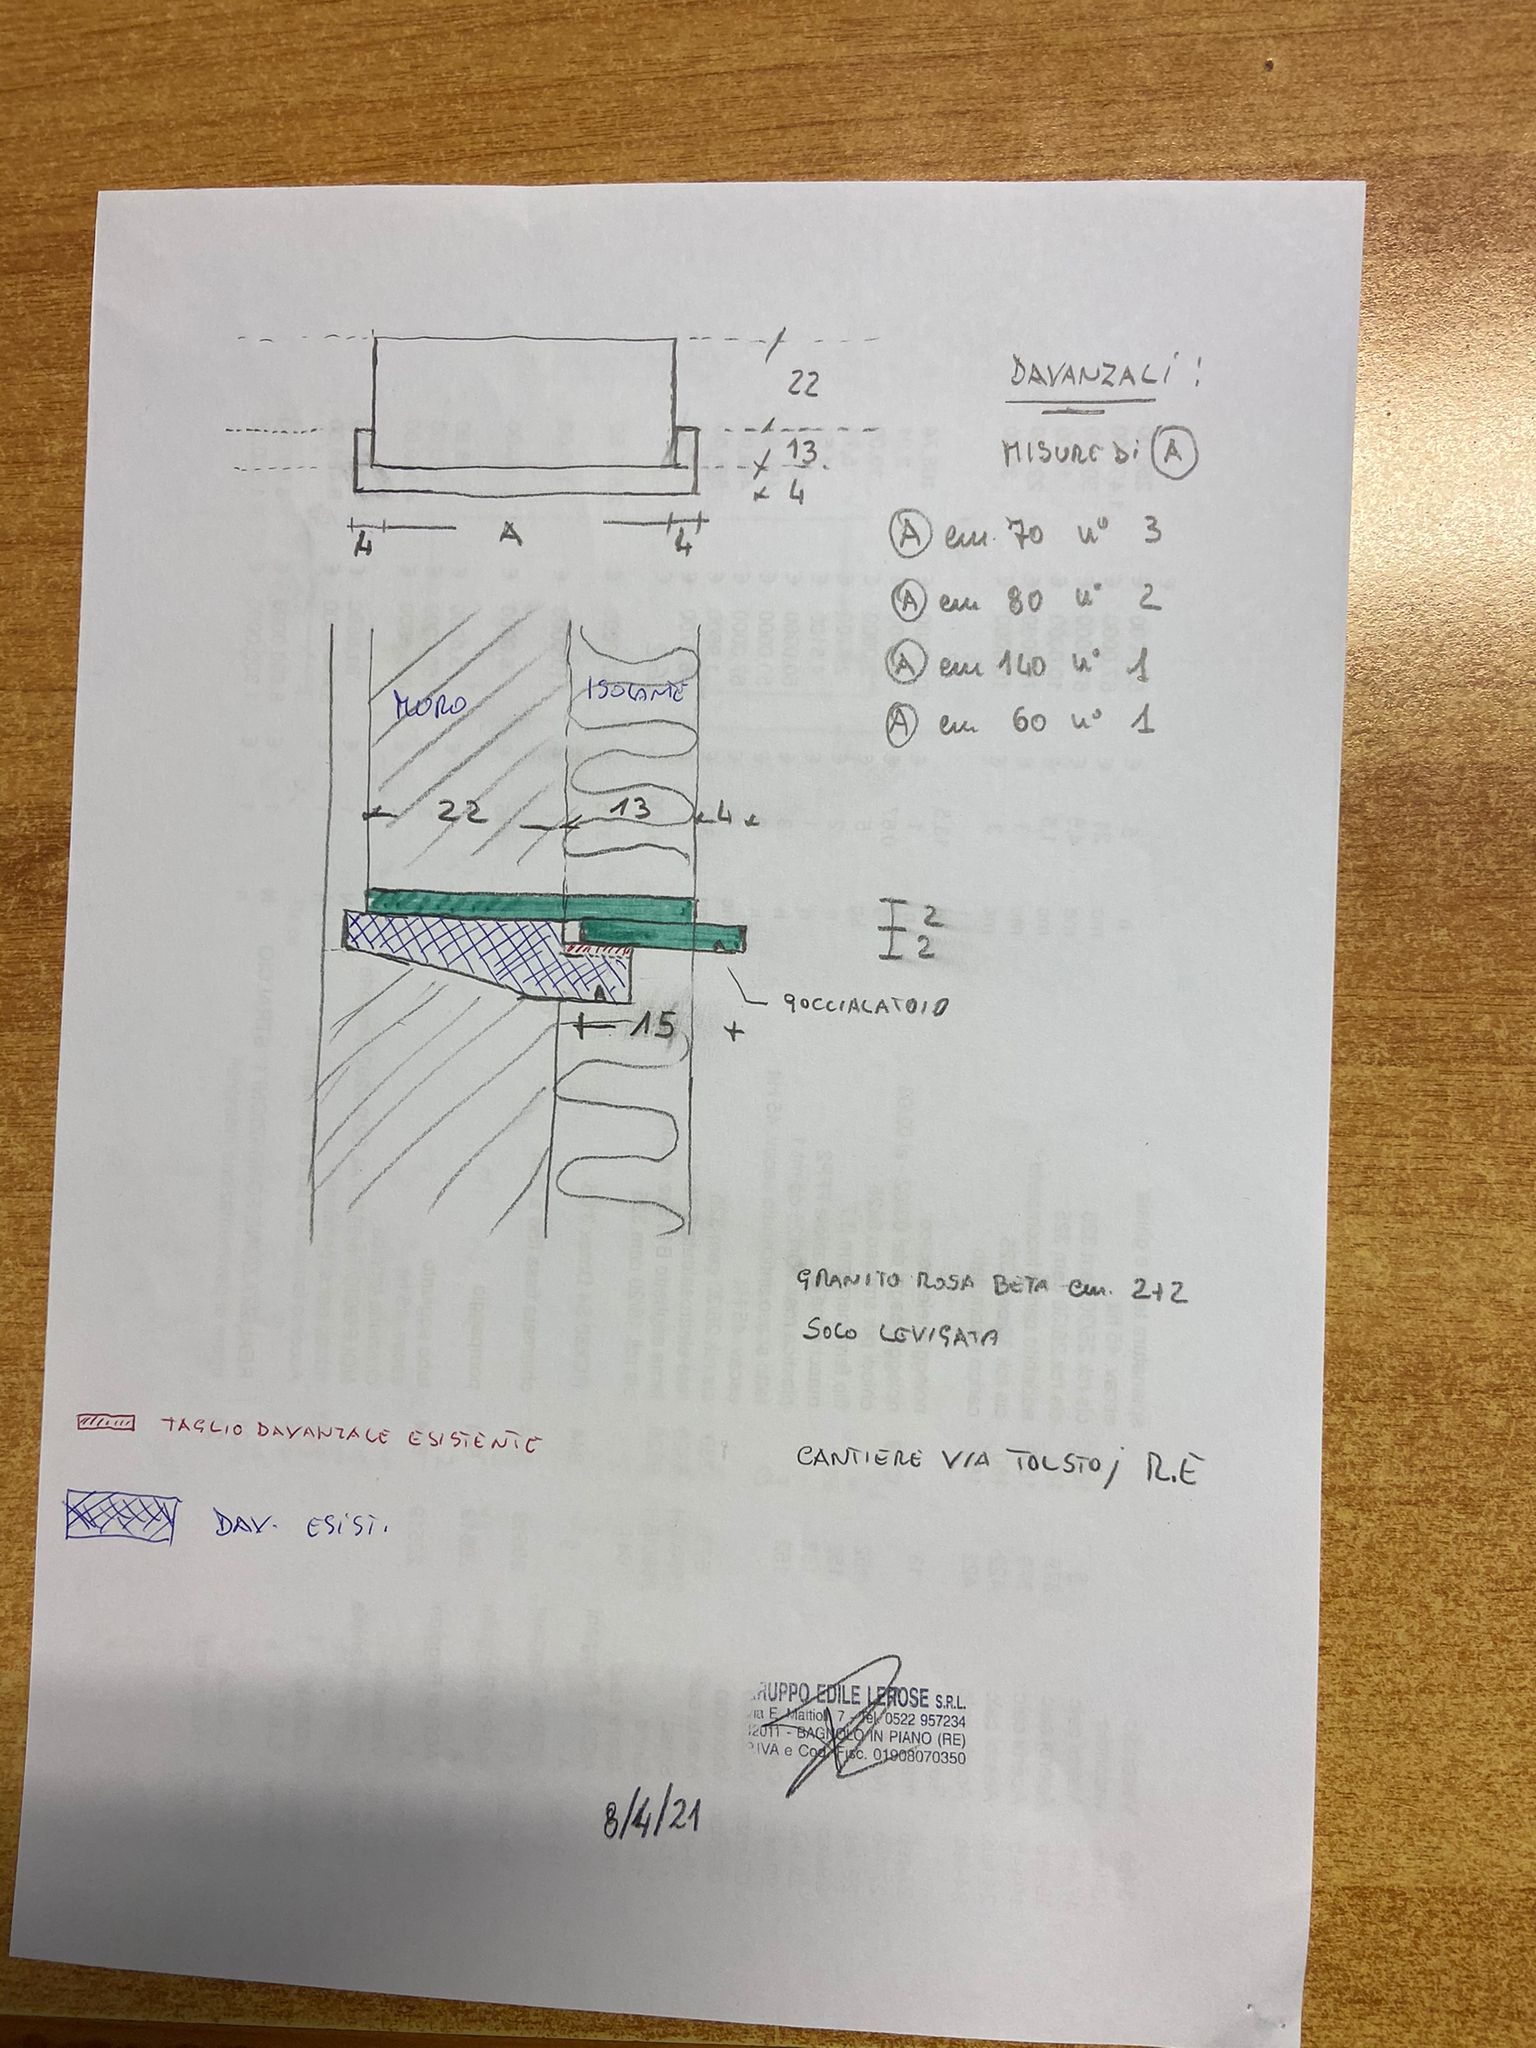 22
13
4
4 A 4
DAVANZALI:
MISURE DI A
A cm 70 n° 3
A cm 80 n° 2
A cm 140 n° 1
A cm 60 n° 1
MURO
ISOLANTE
22 13 4
2
2
GOCCIALATOIO
15
GRANITO ROSA BETA cm. 2+2
SOLO LEVIGATA
TAGLIO DAVANZALE ESISTENTE
CANTIERE VIA TOLSTOj R.E
DAV. ESIST.
RUPPO EDILE LEROSE S.R.L.
ia E. Mattioli 7 - Tel. 0522 957234
2011 - BAGNOLO IN PIANO (RE)
IVA e Cod. Fisc. 01908070350
8/4/21